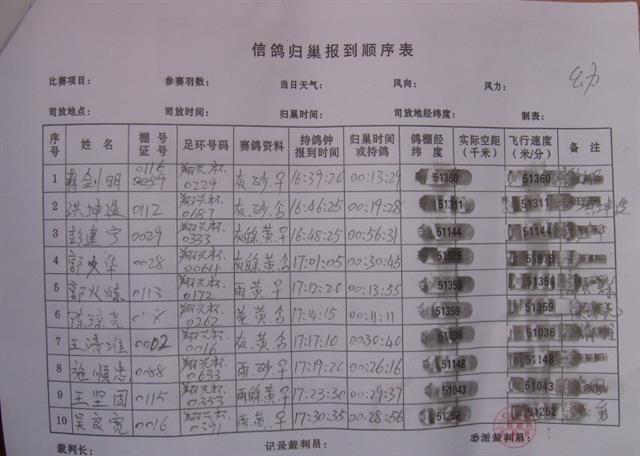 信鸽归巢报到顺序表
比赛项目： 参赛羽数： 当日天气： 风向： 风力：
司放地点： 司放时间： 归巢时间： 司放地经纬度： 制表：
序号 姓名 棚号证号 足环号码 赛鸽资料 持鸽钟报到时间 归巢时间或持鸽 鸽棚经纬度 实际空距（千米） 飞行速度（米/分） 备注
1 剑明 0115 0059 翔兴杯 0229 灰砂早 16:39:20 00:13:29 51360 51360
2 洪坤 0112 翔兴杯 0687 灰砂合 16:46:25 00:19:28 51311 51311
3 彭建宁 0029 翔兴杯 0333 灰绿黄早 16:48:25 00:56:31 51144 51144
4 郭 华 0028 翔兴杯 灰绿黄合 17:01:05 00:30:45
5 郭火炼 0113 翔兴杯 0172 雨黄早 17:12:20 00:13:55 51356 51356
6 陈 翔兴杯 0262 黄合 17:14:15 00:11:11 51359 51359
7 王清 0002 翔兴杯 0016 灰黄合 17:17:10 00:30:40 51036 51036
8 施顺忠 0088 翔兴杯 0633 雨砂早 17:19:20 00:26:16 51148 51148
9 王坚固 0115 翔兴杯 0353 雨绿黄早 17:23:30 00:29:37 51043 51043
10 吴良宽 0016 翔兴杯 0391 灰黄早 17:30:35 00:28:56 51252 51252
裁判长： 记录裁判员： 委派裁判员：